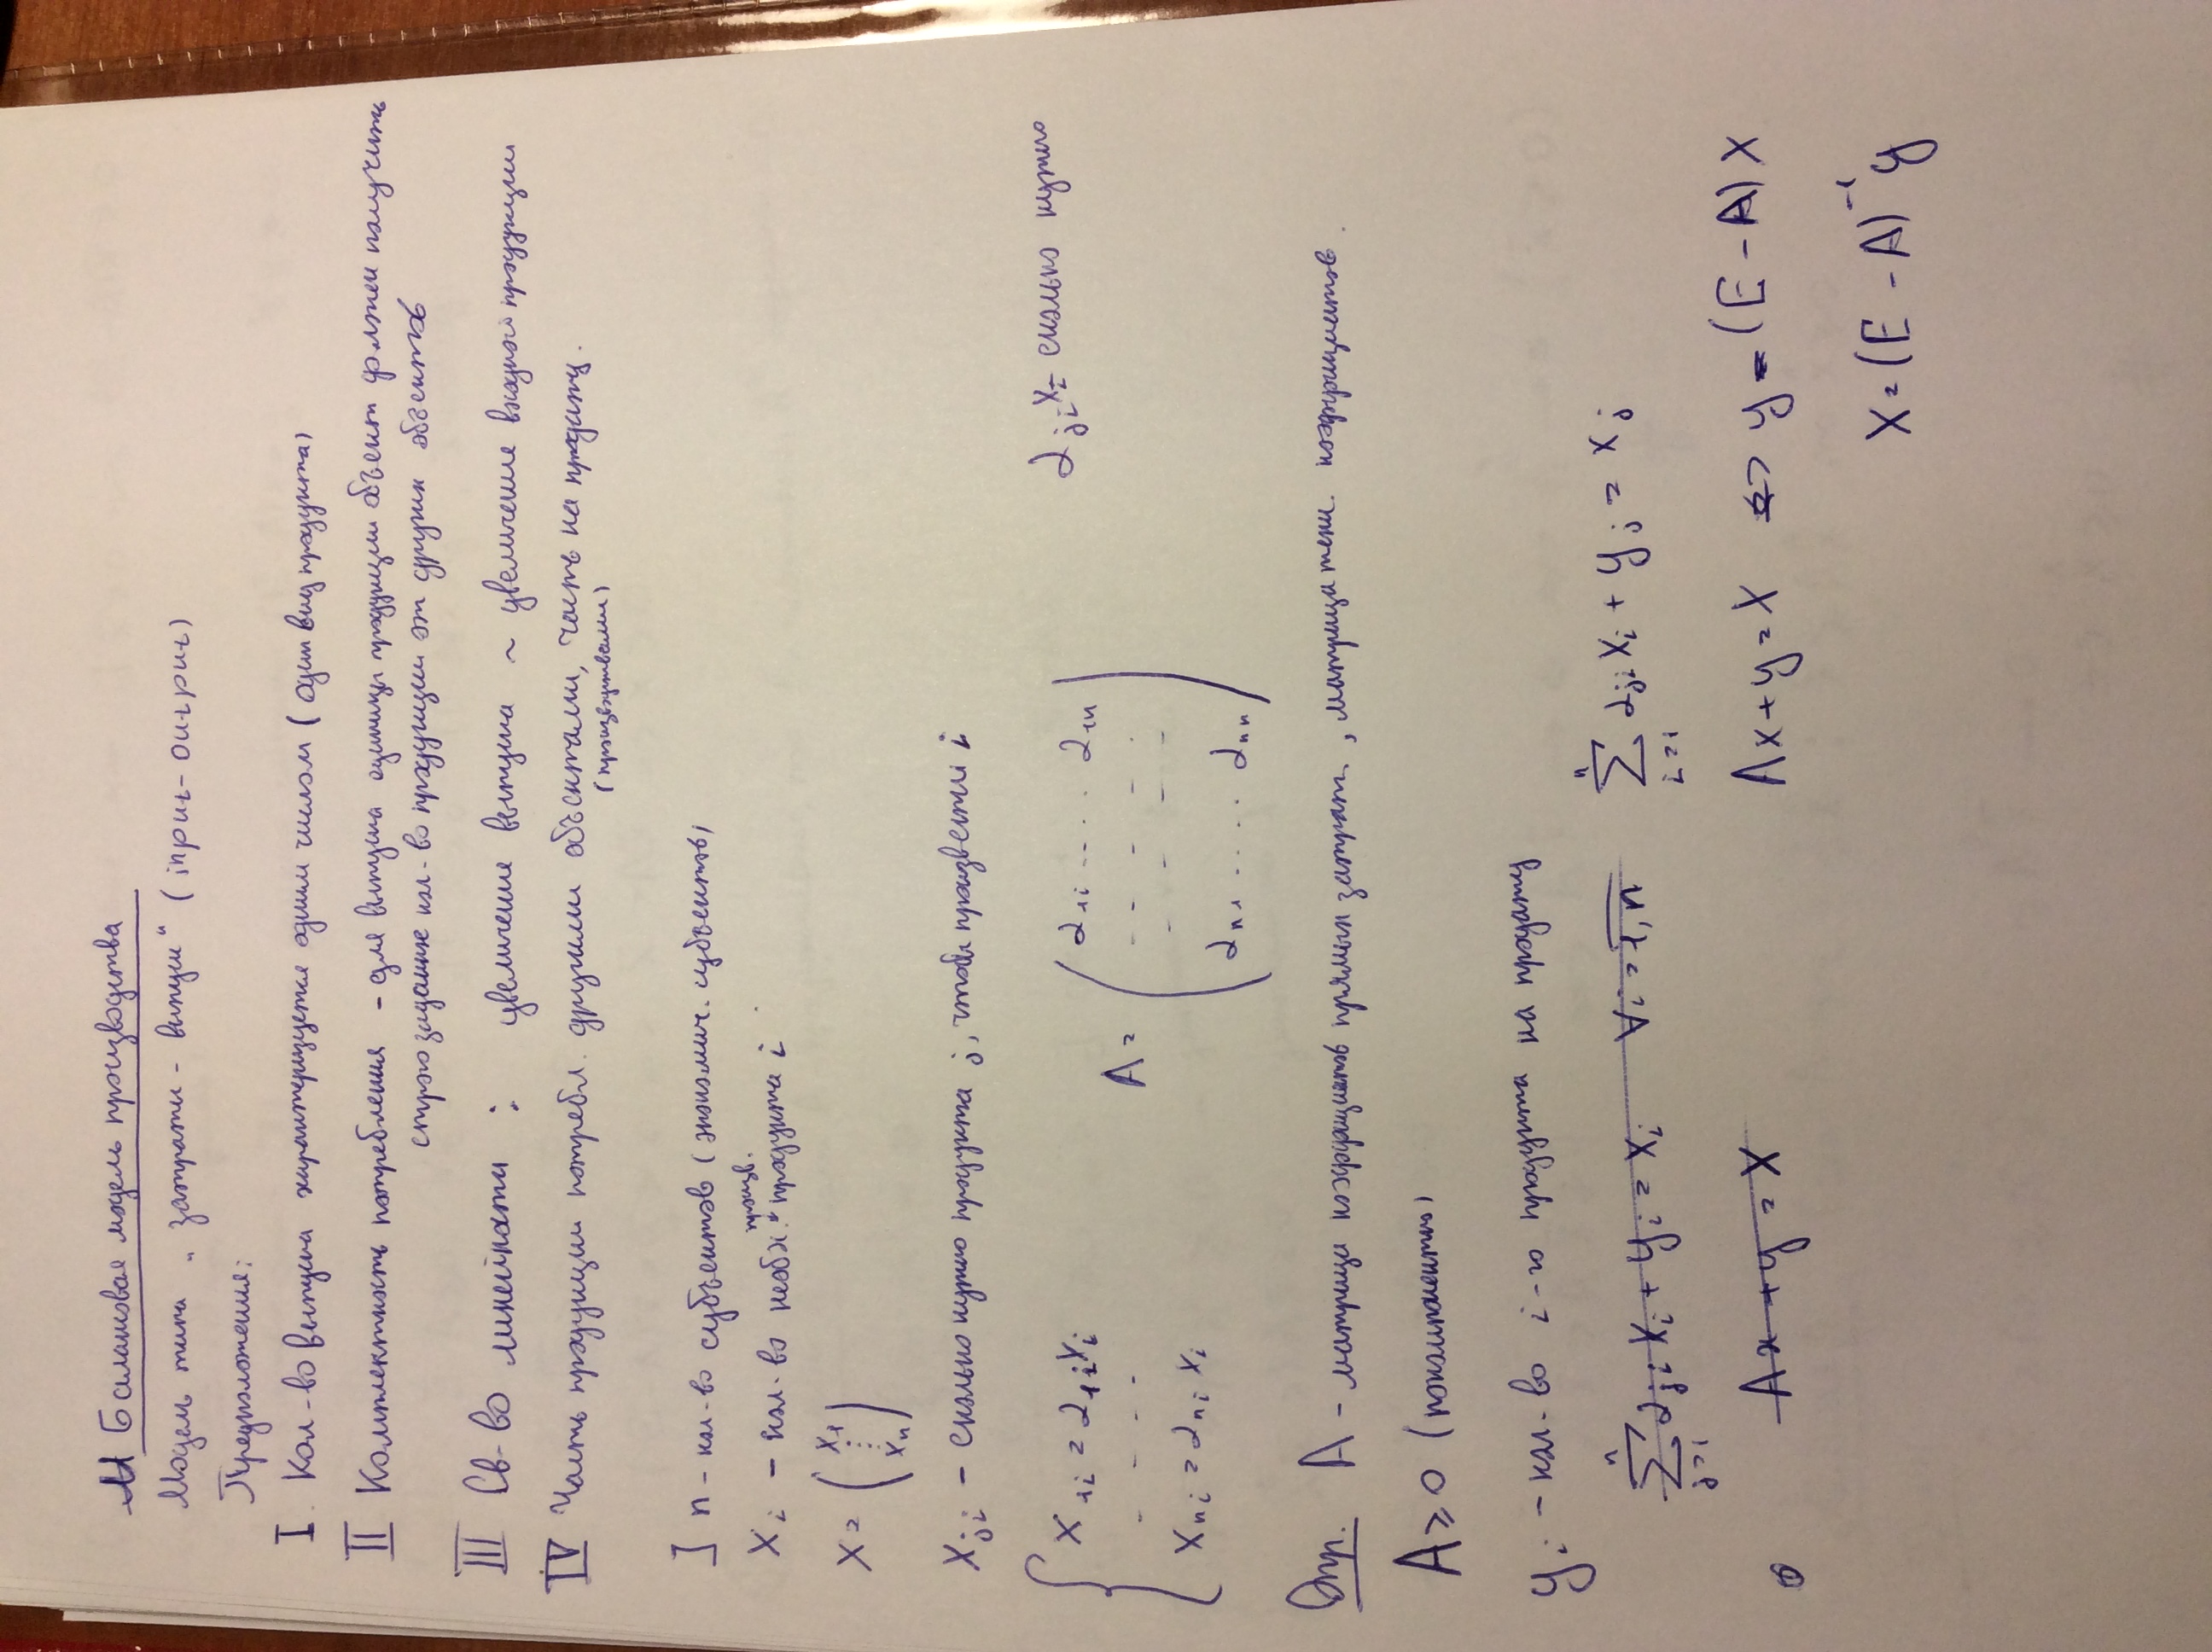 Балансовая модель производства
Модель типа „затраты - выпуск“ (input-output)
Предположения:
I. Кол-во выпуска характеризуется одним числом (один вид продукта)
II Комплектность потребления - для выпуска единицы продукции объект должен получить
строго заданное кол-во продукции от других объектов
III Св-во линейности : увеличение выпуска ~ увеличение входной продукции
IV Часть продукции потребл. другими объектами, часть на продажу.
(производствами)
] n - кол-во субъектов (экономич. субъектов)
произв.
x_i - кол-во необх. продукта i
X = (x_1 ⋮ x_n)
x_ji - сколько нужно продукта j, чтобы произвести i
{ x_1i = α_1i x_i
- - - -
x_ni = α_ni x_i
A = ( α_1i .... α_1n
- - - - -
- - - -
α_n1 ..... α_nn )
α_ji x_i - сколько нужно
Опр. A - матрица коэффициентов прямых затрат, матрица техн. коэффициентов.
A ≥ 0 (покомпонентно)
y_i - кол-во i-го продукта на продажу
∑_{j=1}^{n} α_ji x_i + y_i = x_i ∀i = 1,n
∑_{i=1}^{n} α_ji x_i + y_j = x_j
Ax + y = X
Ax + y = X ⇔ y = (E - A) X
X = (E - A)^{-1} y